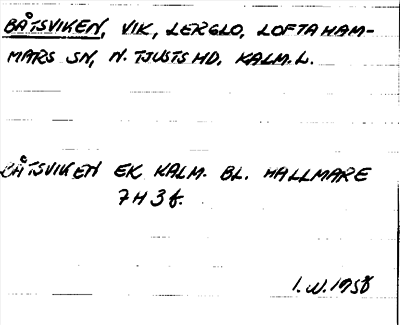 BÅTSVIKEN, VIK, LERGLO, LOFTAHAM-
MARS SN, N. TJUSTS HD, KALM. L.
BÅTSVIKEN EK KALM. BL. HALLMARE
7H3f.
1.W.1958